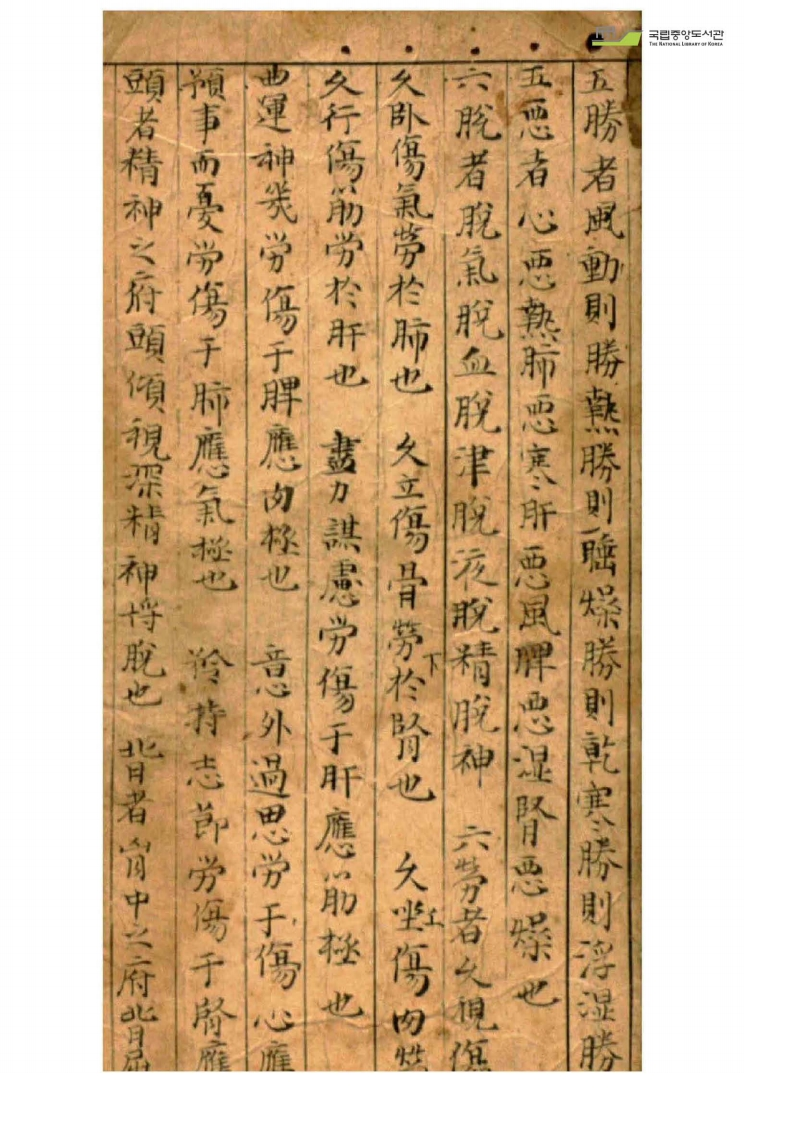 국립중앙도서관
THE NATIONAL LIBRARY OF KOREA
五勝者風動則勝熱勝則腫燥勝則乾寒勝則浮湿勝
五悪者心悪熱肺悪寒肝悪風脾悪湿腎悪燥也
六脫者脫氣脫血脫津脫液脫精脫神 六勞者久視傷
久卧傷氣勞於肺也 久立傷骨勞下於腎也 久坐傷肉勞
久行傷筋労於肝也 盡力謀慮労傷于肝應筋極也
曲運神幾労傷于脾應肉極也 意外過思労于傷心應
預事而憂労傷于肺應氣極也 矜持志節労傷于腎應
頭者精神之府頭傾視深精神將脫也 背者胸中之府背